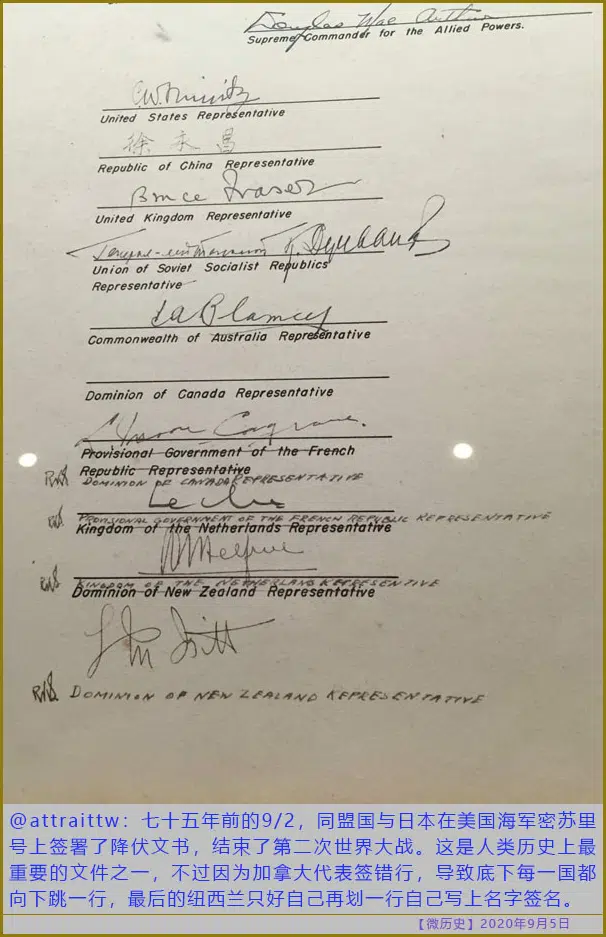 Douglas MacArthur
Supreme Commander for the Allied Powers.
C.W. Nimitz
United States Representative
徐永昌
Republic of China Representative
Bruce Fraser
United Kingdom Representative
Union of Soviet Socialist Republics
Representative
T.A. Blamey
Commonwealth of Australia Representative
Dominion of Canada Representative
L. Moore Cosgrave.
Provisional Government of the French
Republic Representative
RKS. DOMINION OF CANADA REPRESENTATIVE
Leclerc
RKS. PROVISIONAL GOVERNMENT OF THE FRENCH REPUBLIC REPRESENTATIVE
Kingdom of the Netherlands Representative
Helfrich
RKS. KINGDOM OF THE NETHERLAND REPRESENTIVE
Dominion of New Zealand Representative
L M Isitt
RKS. DOMINION OF NEW ZEALAND REPRESENTATIVE
@attraittw：七十五年前的9/2，同盟国与日本在美国海军密苏里
号上签署了降伏文书，结束了第二次世界大战。这是人类历史上最
重要的文件之一，不过因为加拿大代表签错行，导致底下每一国都
向下跳一行，最后的纽西兰只好自己再划一行自己写上名字签名。
【微历史】2020年9月5日